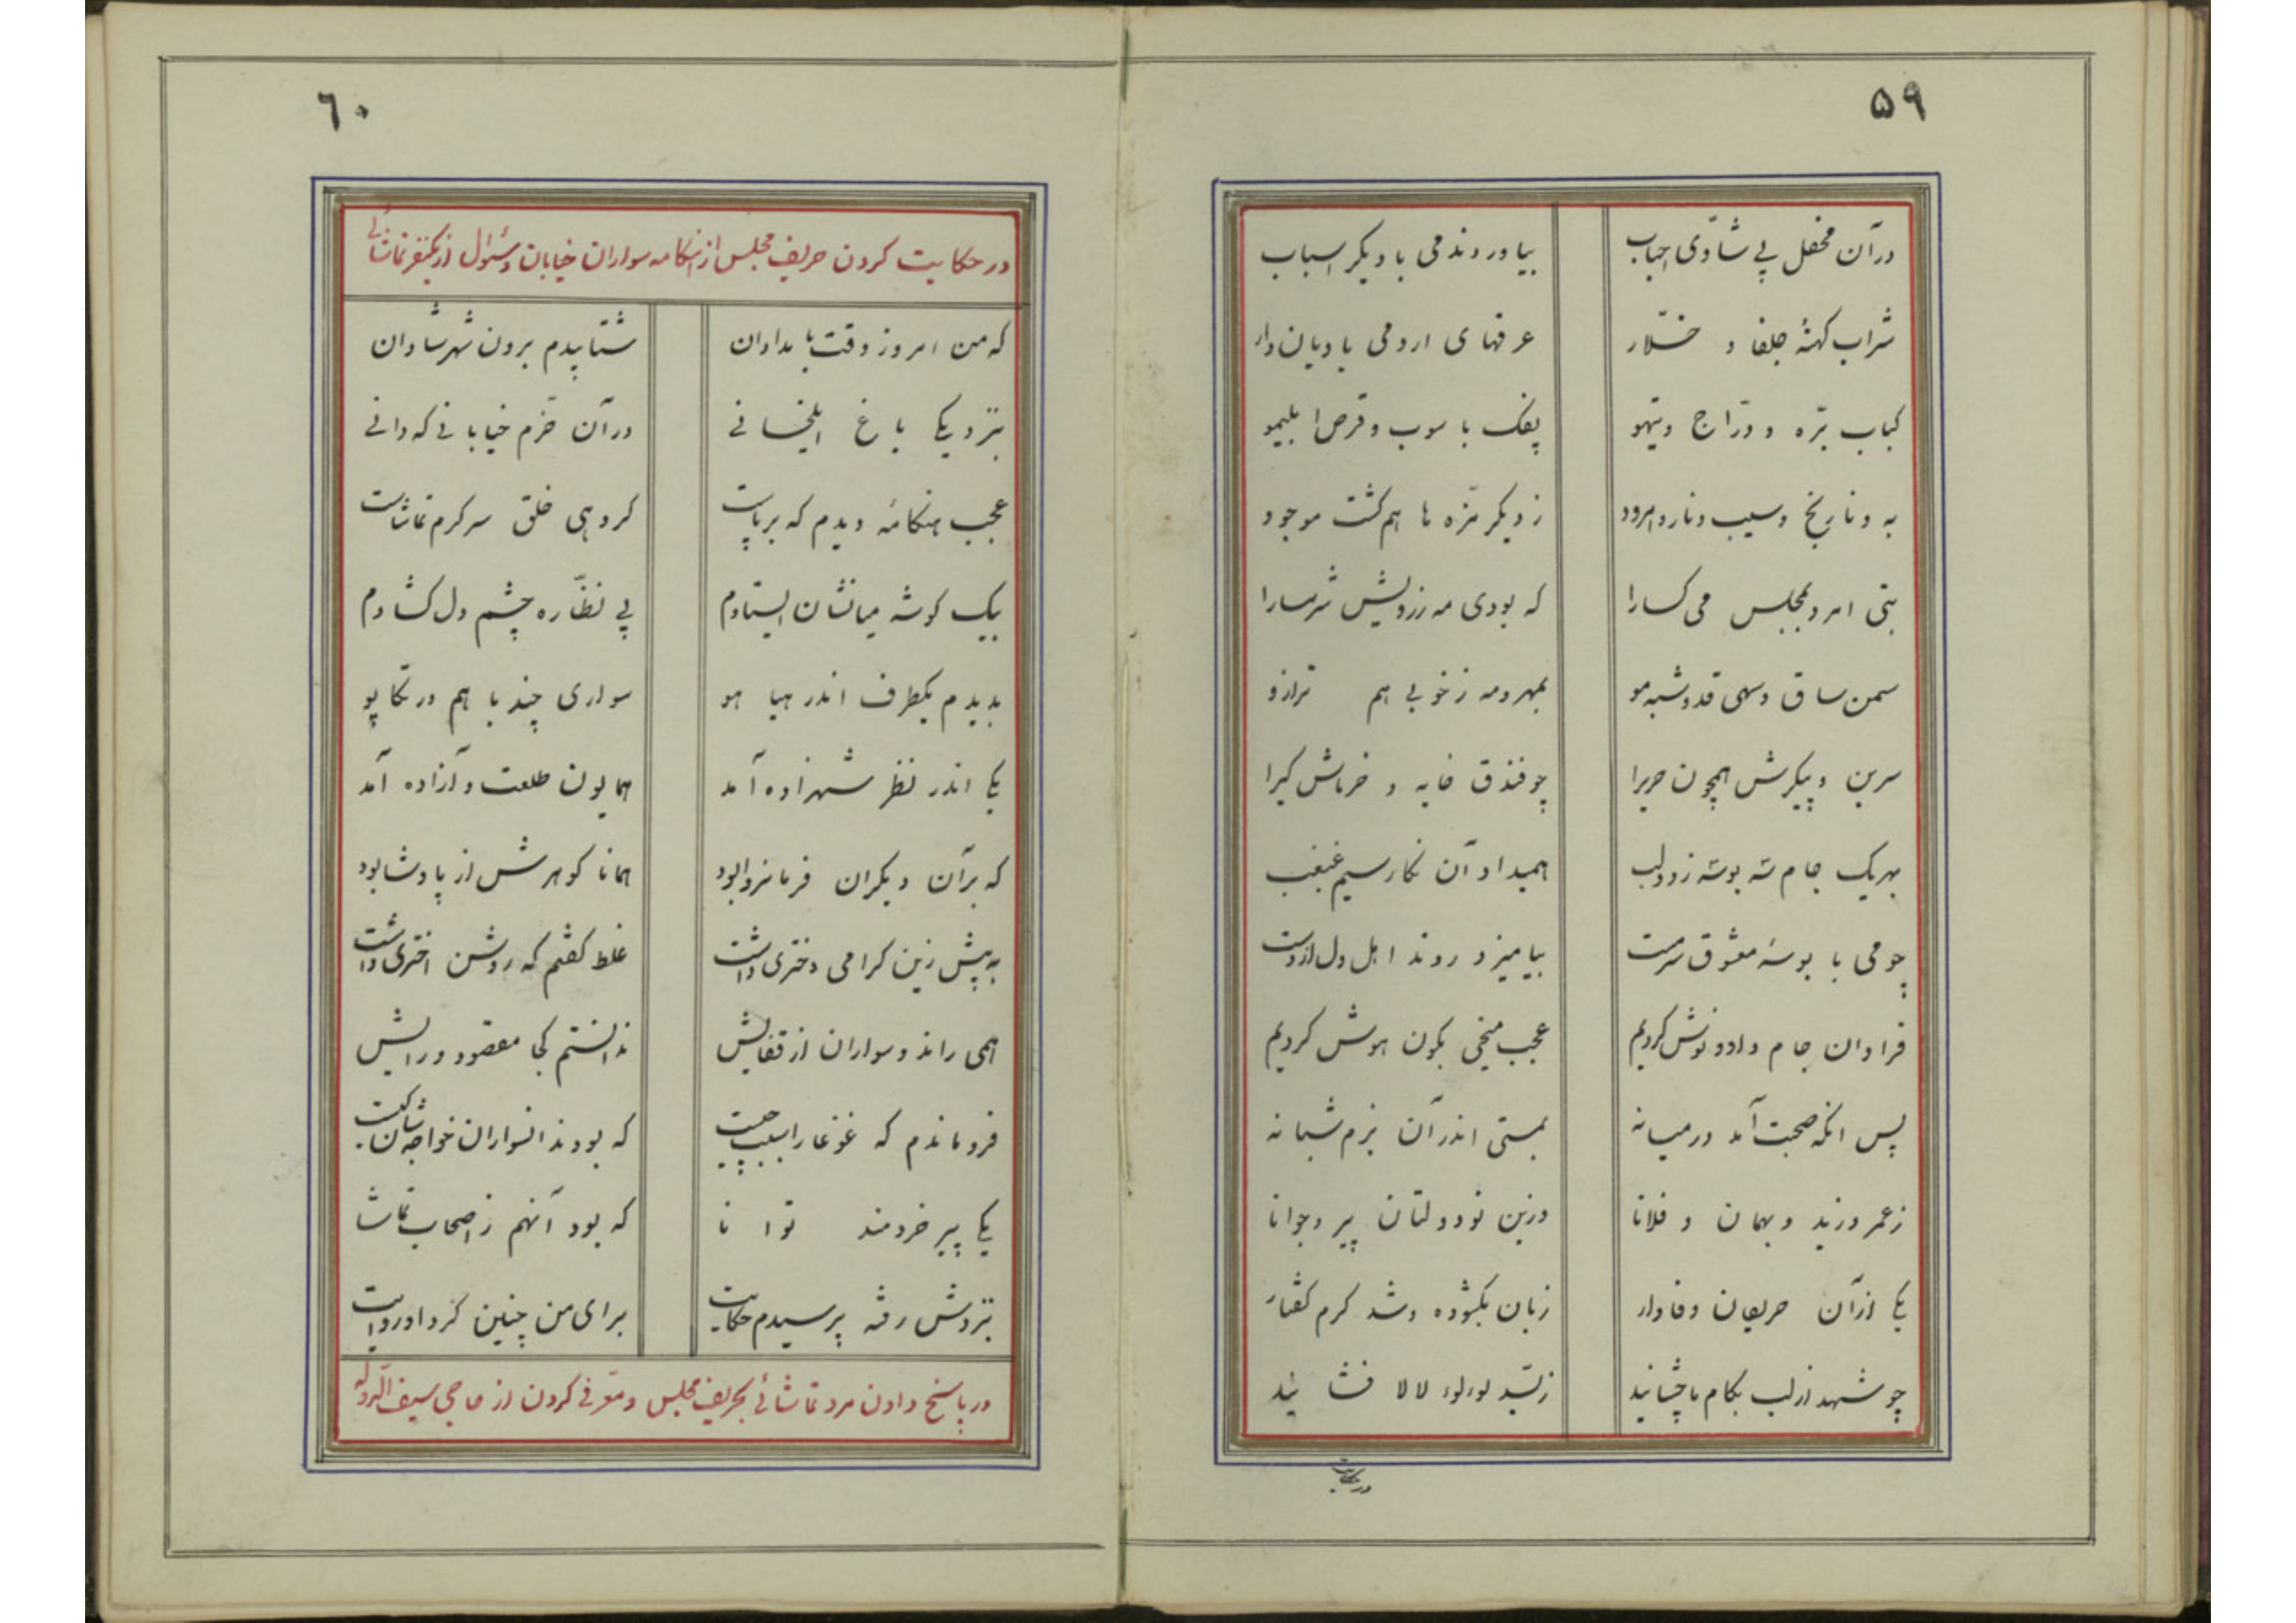 ۵۹
درآن محفل پی شادّی احباب بیاوردند می با دیگر اسباب
شراب کهنهٔ جلفا و خلّار عرقهای ارومی بادیان دار
کباب برّه و درّاج و تیهو پفک با سوب و قرص ابلیمو
به و نارنج و سیب و نار و امرود ز دیگر مزّه ها هم گشت موجود
بتی امرد بمجلس می گسارا که بودی مه ز رویش شرمسارا
سمن ساق و سهی قد و شبه مو بمهر و مه ز خوبی هم ترازو
سرین و پیکرش همچون حریرا چو فندق خایه و خرماش کیرا
بهریک جام سه بوسه ز دو لب همیداد آن نگار سیم غبغب
چو می با بوسهٔ معشوق سرمست بیامیزد روند اهل دل از دست
فراوان جام داد و نوش کردیم عجب میخی بکون هوش کردیم
پس انگه صحبت آمد در میانه بمستی اندر آن بزم شبانه
ز عمر و زید و بهمان و فلانا وزین نودولتان پیر و جوانا
یکی از آن حریفان وفادار زبان بگشوده و شد گرم گفتار
چو شهد از لب بکام ما چشانید ز بسّد لوءلوء لالا فشانید
در حکایت
٦۰
در حکایت کردن حریف مجلس از هنگامه سواران خیابان و سئوال از یکنفر تماشائی
که من امروز وقت بامدادان شتابیدم برون شهر شادان
بنزدیکی باغ ایلخانی در آن خرّم خیابانی که دانی
عجب هنگامهٔ دیدم که برپاست گروهی خلق سرگرم تماشاست
بیک گوشه میانشان ایستادم پی نظّاره چشم دل گشادم
بدیدم یکطرف اندر هیا هو سواری چند با هم در تکاپو
یکی اندر نظر شهزاده آمد همایون طلعت و آزاده آمد
که بر آن دیگران فرمانروا بود همانا گوهرش از پادشا بود
به پیش زین گرامی دختری داشت غلط گفتم که روشن اختری داشت
همی راند و سواران از قفایش ندانستم کجا مقصود و رایش
فروماندم که غوغا را سبب چیست که بودند انسواران خواجه شان کیست
یکی پیر خردمند توانا که بود آنهم ز اصحاب تماشا
بنزدش رفته پرسیدم حکایت برای من چنین کرد او روایت
در پاسخ دادن مرد تماشائی بحریف مجلس و معّرفی کردن از حاجی سیف الّدوله